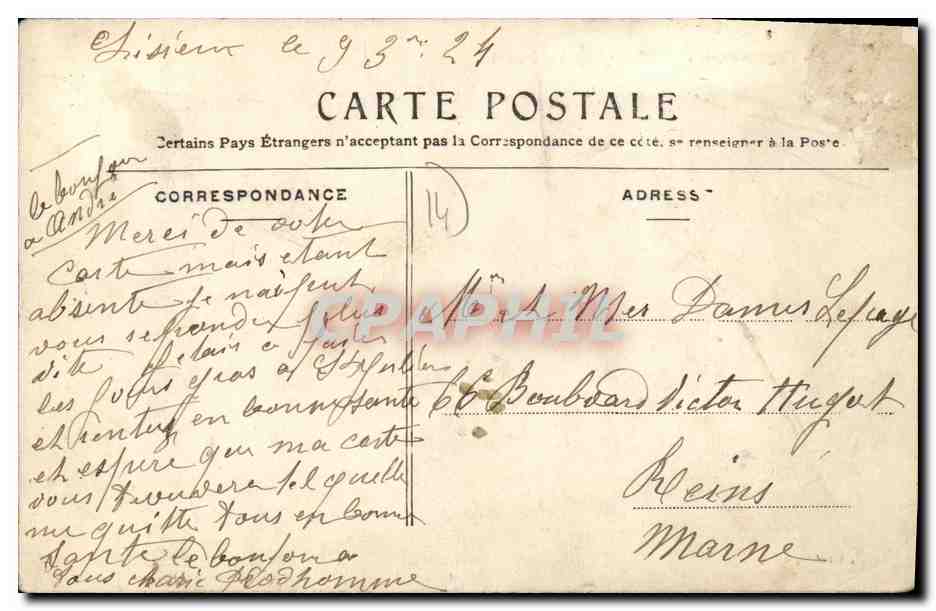 Lisieux le 9 3 24
CARTE POSTALE
Certains Pays Étrangers n'acceptant pas la Correspondance de ce côté, se renseigner à la Poste
CORRESPONDANCE
ADRESS
14
le bonjour
a André
Merci de votre
Carte mais etant
absente je
vous plus
vite jetais a
les jours gras a St Julien
et en bonne santé
et espere que ma carte
vous trouvera tel quelle
me quitte tous en bonne
sante le bonjour a
tous Prodhomme
CPAPHIL
Mr et Mes Dames Lepage
66 Boulvard Victor Hugot
Reins
Marne